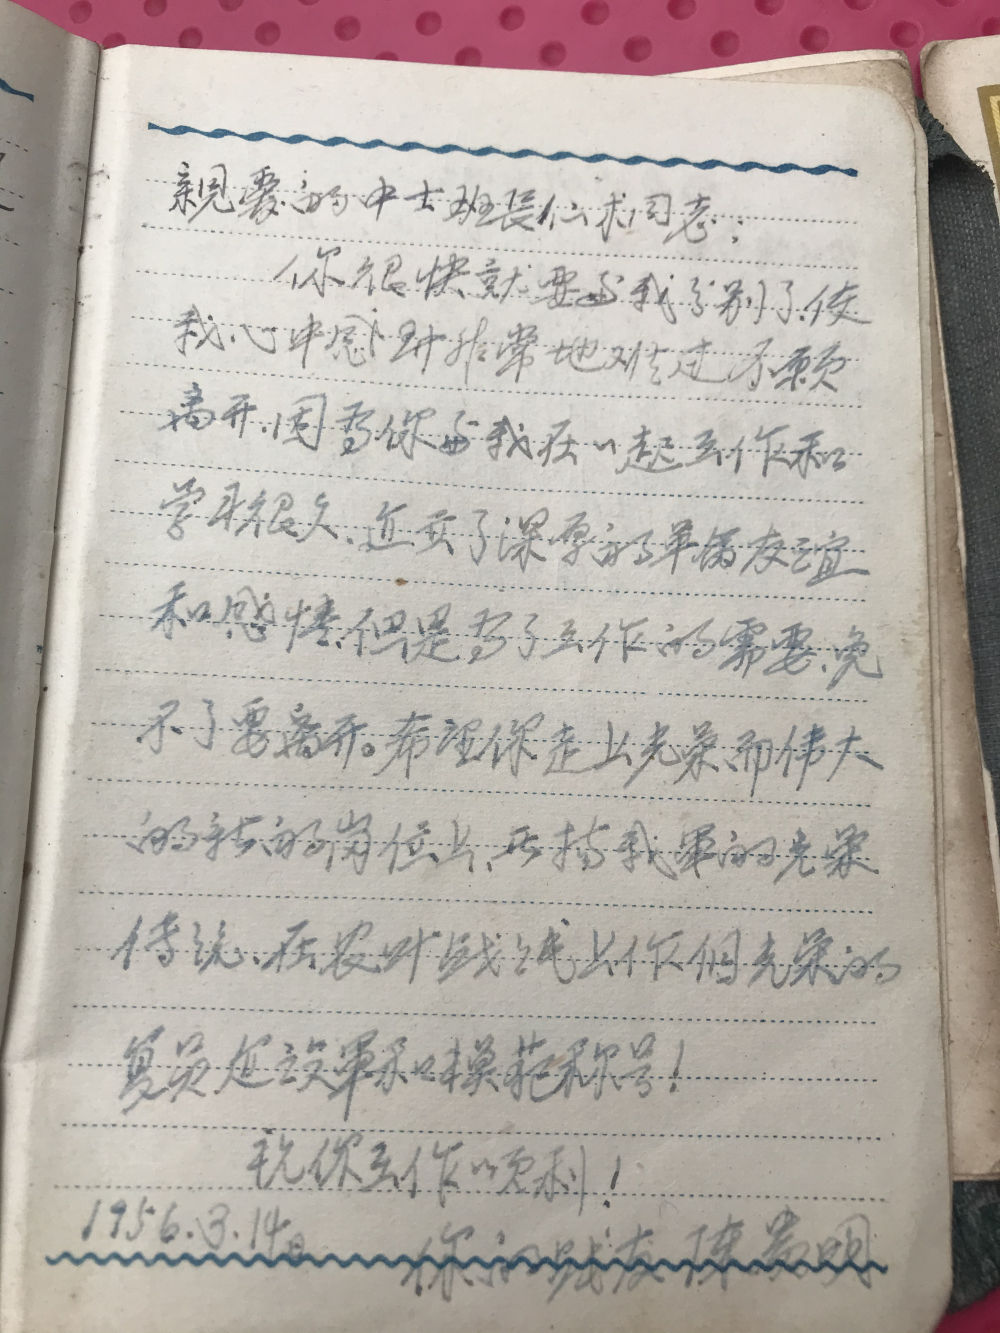 親愛的中士班長仁求同志：
你很快就要与我分别了，使
我心中感到非常地难过不愿
离开，因为你与我在一起工作和
学习很久，建立了深厚的革命友谊
和感情，但是为了工作的需要，免
不了要离开。希望你走上光荣而伟大
的新的岗位上，发揚我軍的光荣
传统，在农业战线上作個光荣的
复员建设軍和模范称号！
祝你工作順利！
1956.3.14日
你的战友陈 明